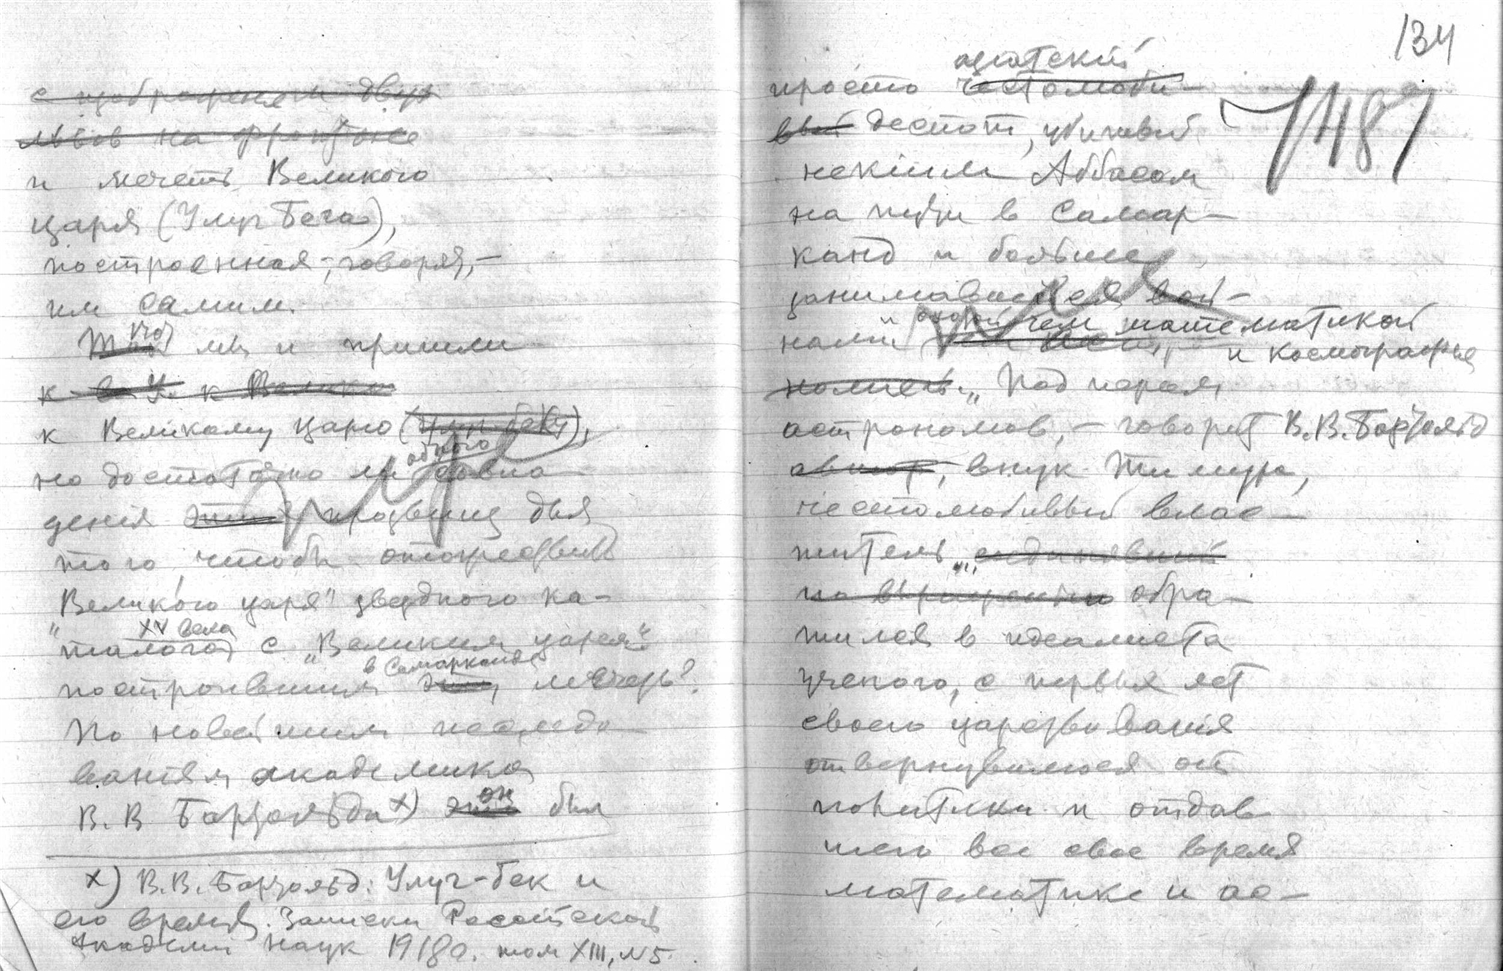 с изображением двух
львов на фронтоне
и мечеть Великого
царя (Улуг Бега),
построенная, – говорят, –
им самим.
Так что мы и пришли
к в У. к Велико
к Великому царю (Улуг беку),
но достаточно ли одного совпа-
дения этих прозвищ для
того, чтобы отождествить
"Великого царя" звездного ка-
талога XV века с "Великим царем"
построившим в Самарканде эту мечеть?
По новейшим исследо-
ваниям академика
В. В Бартольда x) это он был
x) В. В. Бартольд: Улуг-бек и
его время. Записки Российской
Академии Наук 1918 г. том XIII, №5.
134
1481
просто азиатский честолюби-
вый деспот, убитый
некіим Аббасом
на пути в Самар-
канд и больше
занимавшийся вой-
нами и охотой чем математикой
и космографией
"Под пером
астрономов, – говорит В. В. Бартольд
автор, внук Тимура,
честолюбивый влас-
титель,
по выражению обра-
тился в идеалиста
ученого, с первых лет
своего царствования
отвернувшегося от
политики и отдав
шего все свое время
математике и ас-